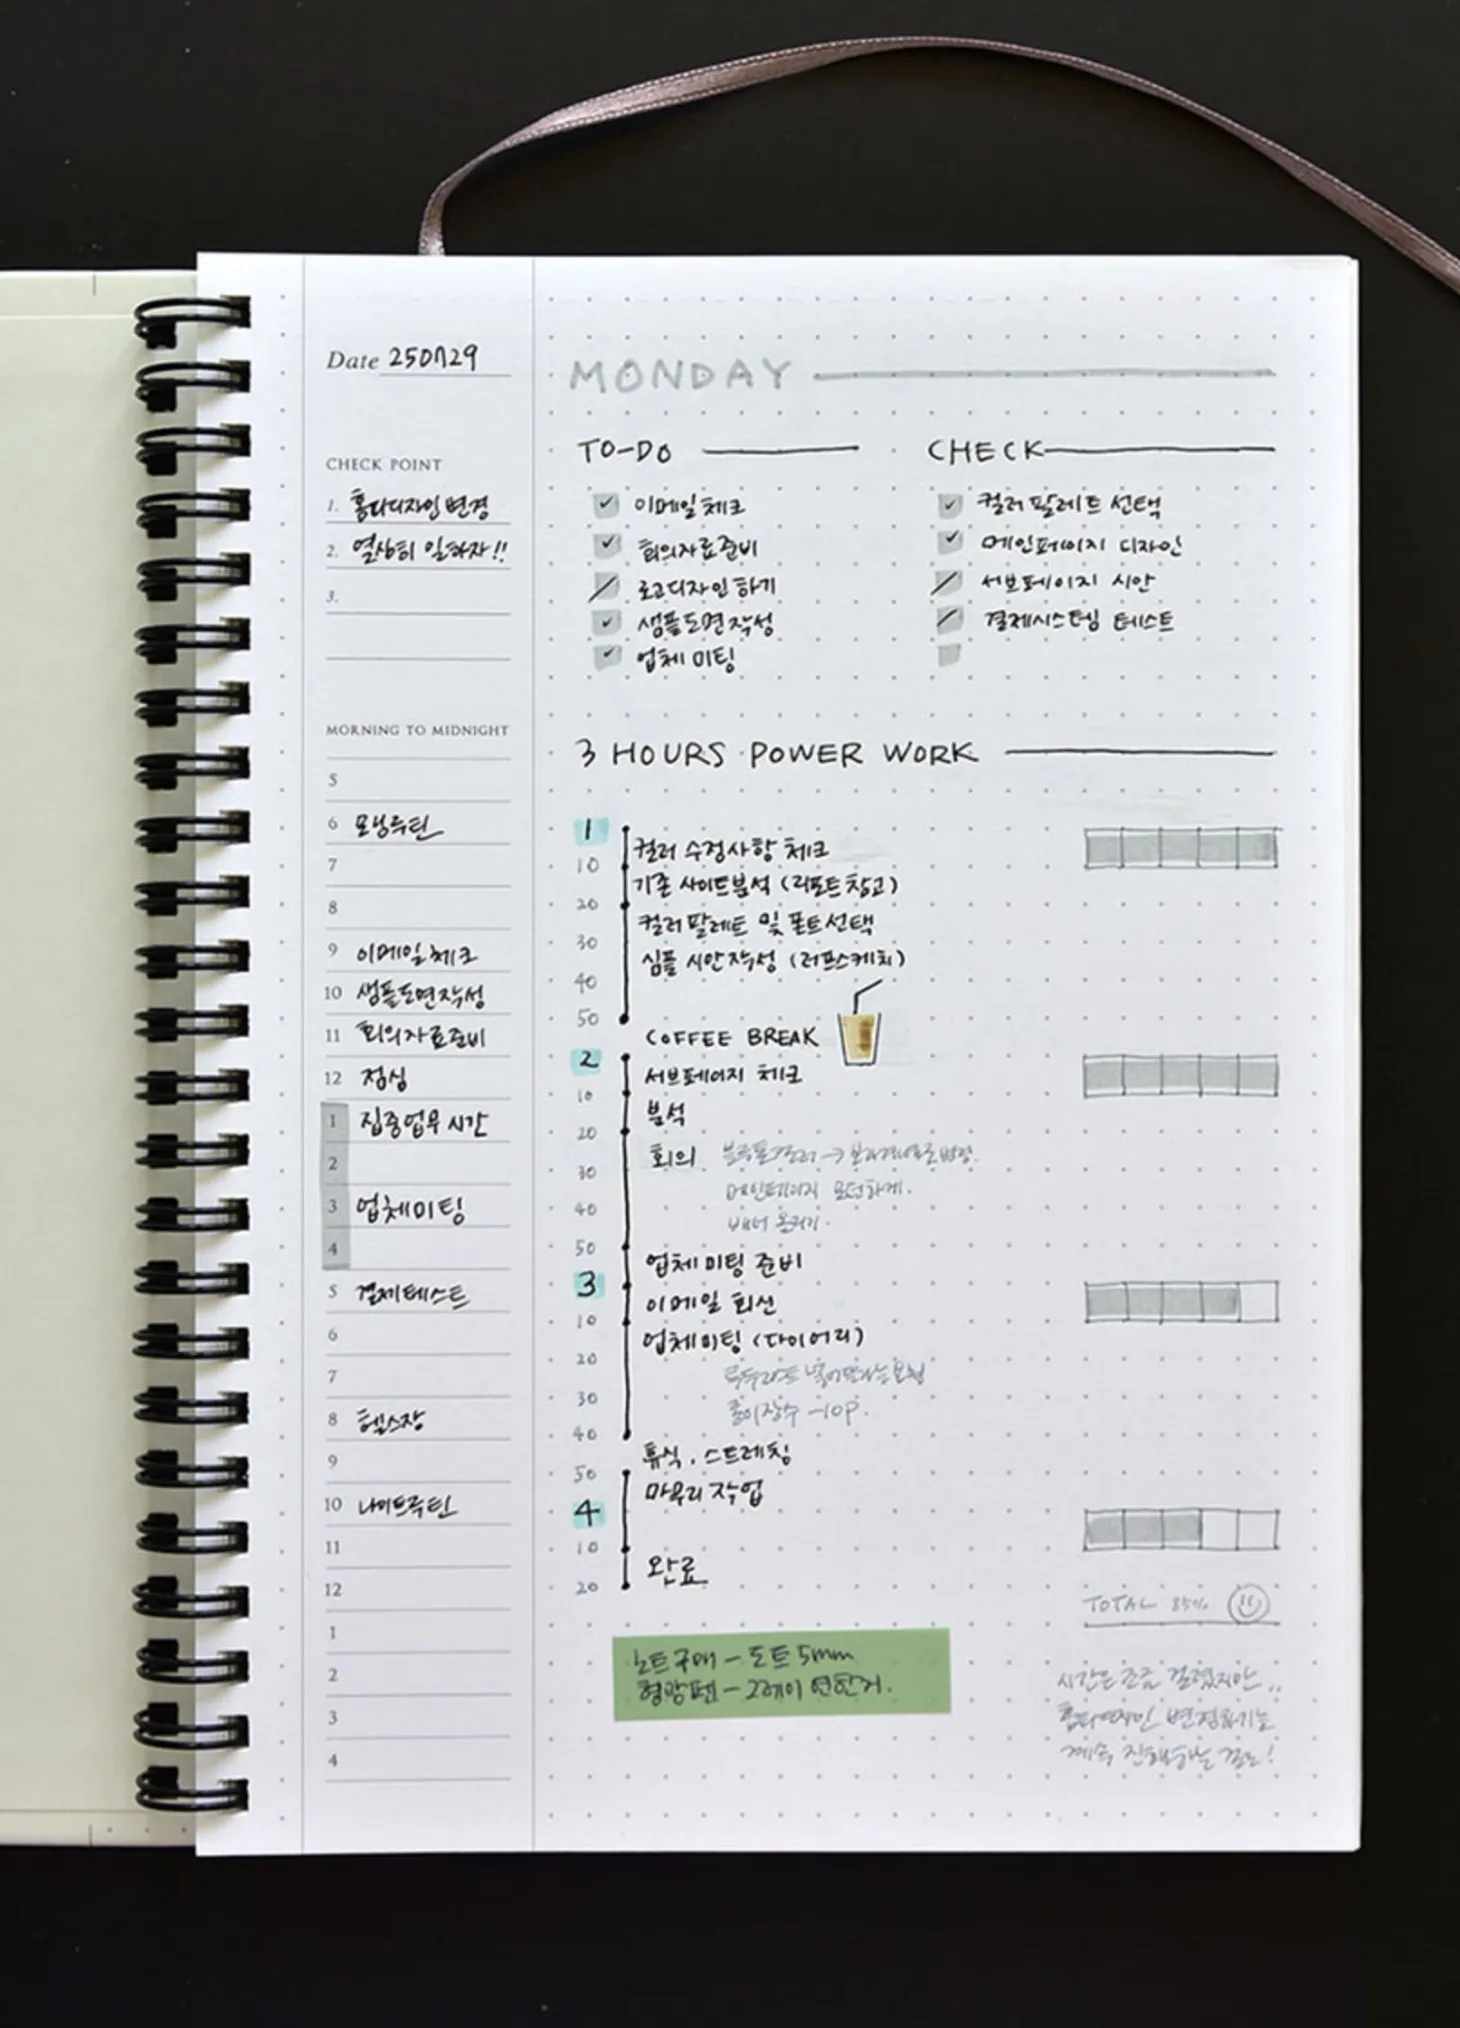 Date 250729
CHECK POINT
1. 홈디자인 변경
2. 열심히 일하자!!
3.
MORNING TO MIDNIGHT
5
6 모닝루틴
7
8
9 이메일체크
10 샘플도면작성
11 회의자료준비
12 점심
1 집중업무시간
2
3 업체미팅
4
5 결제테스트
6
7
8 헬스장
9
10 나이트루틴
11
12
1
2
3
4
MONDAY
TO-DO
이메일체크
회의자료준비
로고디자인하기
샘플도면작성
업체미팅
CHECK
컬러팔레트 선택
메인페이지 디자인
서브페이지 시안
결제시스템 테스트
3 HOURS POWER WORK
1
컬러 수정사항 체크
10
기존 사이트분석 (리포트참고)
20
컬러팔레트 및 폰트선택
30
심플 시안작성 (러프스케치)
40
50
COFFEE BREAK
2
서브페이지 체크
10
분석
20
회의
30
메인페이지 모던하게.
40
배너 올리기.
50
업체미팅 준비
3
이메일 회신
10
업체미팅 (다이어리)
20
30
종이장수 -10P.
40
휴식, 스트레칭
50
마무리 작업
4
10
완료
20
TOTAL 85%
노트구매 - 도트 5mm
형광펜 - 그레이 연한거.
시간은 조금 걸렸지만..
변경하기는
계속 진행하는 걸로!